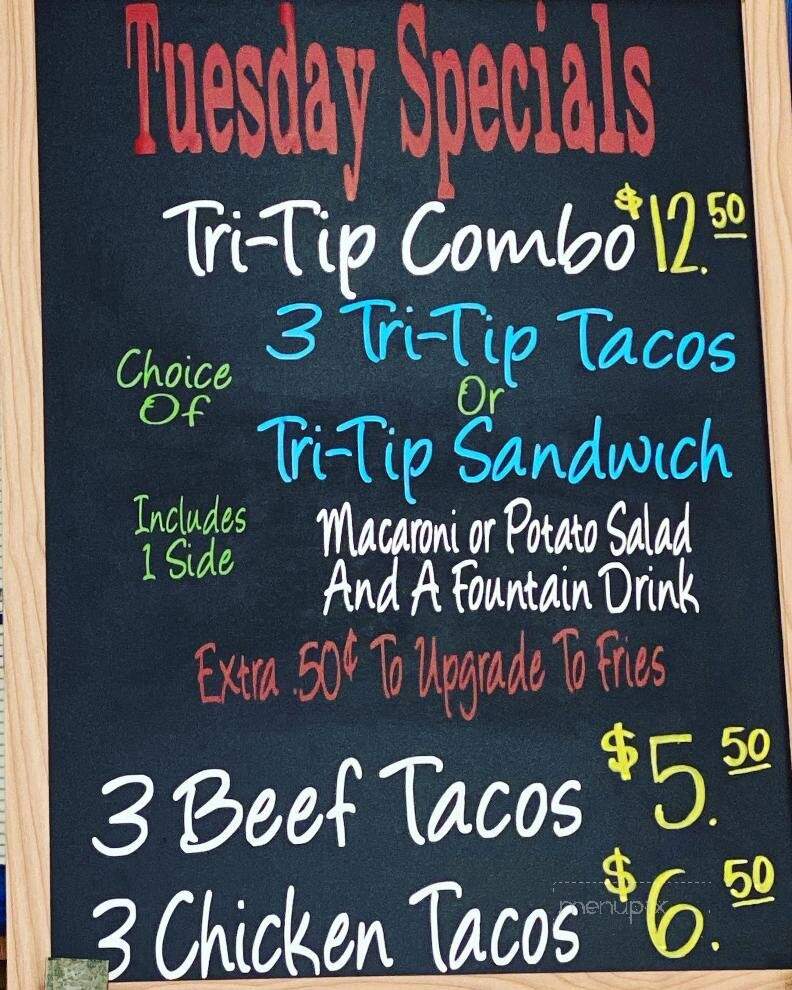 Tuesday Specials
Tri-Tip Combo $12.50
3 Tri-Tip Tacos
Choice Of
Or
Tri-Tip Sandwich
Includes
1 Side
Macaroni or Potato Salad
And A Fountain Drink
Extra .50¢ To Upgrade To Fries
3 Beef Tacos $5.50
3 Chicken Tacos $6.50
menupix